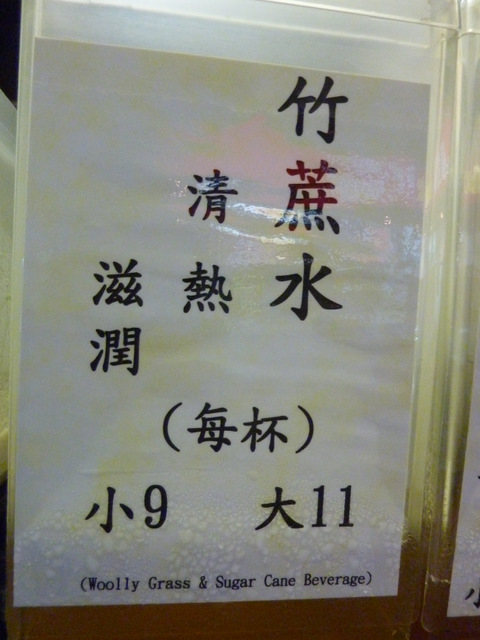 竹蔗水
清熱
滋潤
(每杯)
小9 大11
(Woolly Grass & Sugar Cane Beverage)